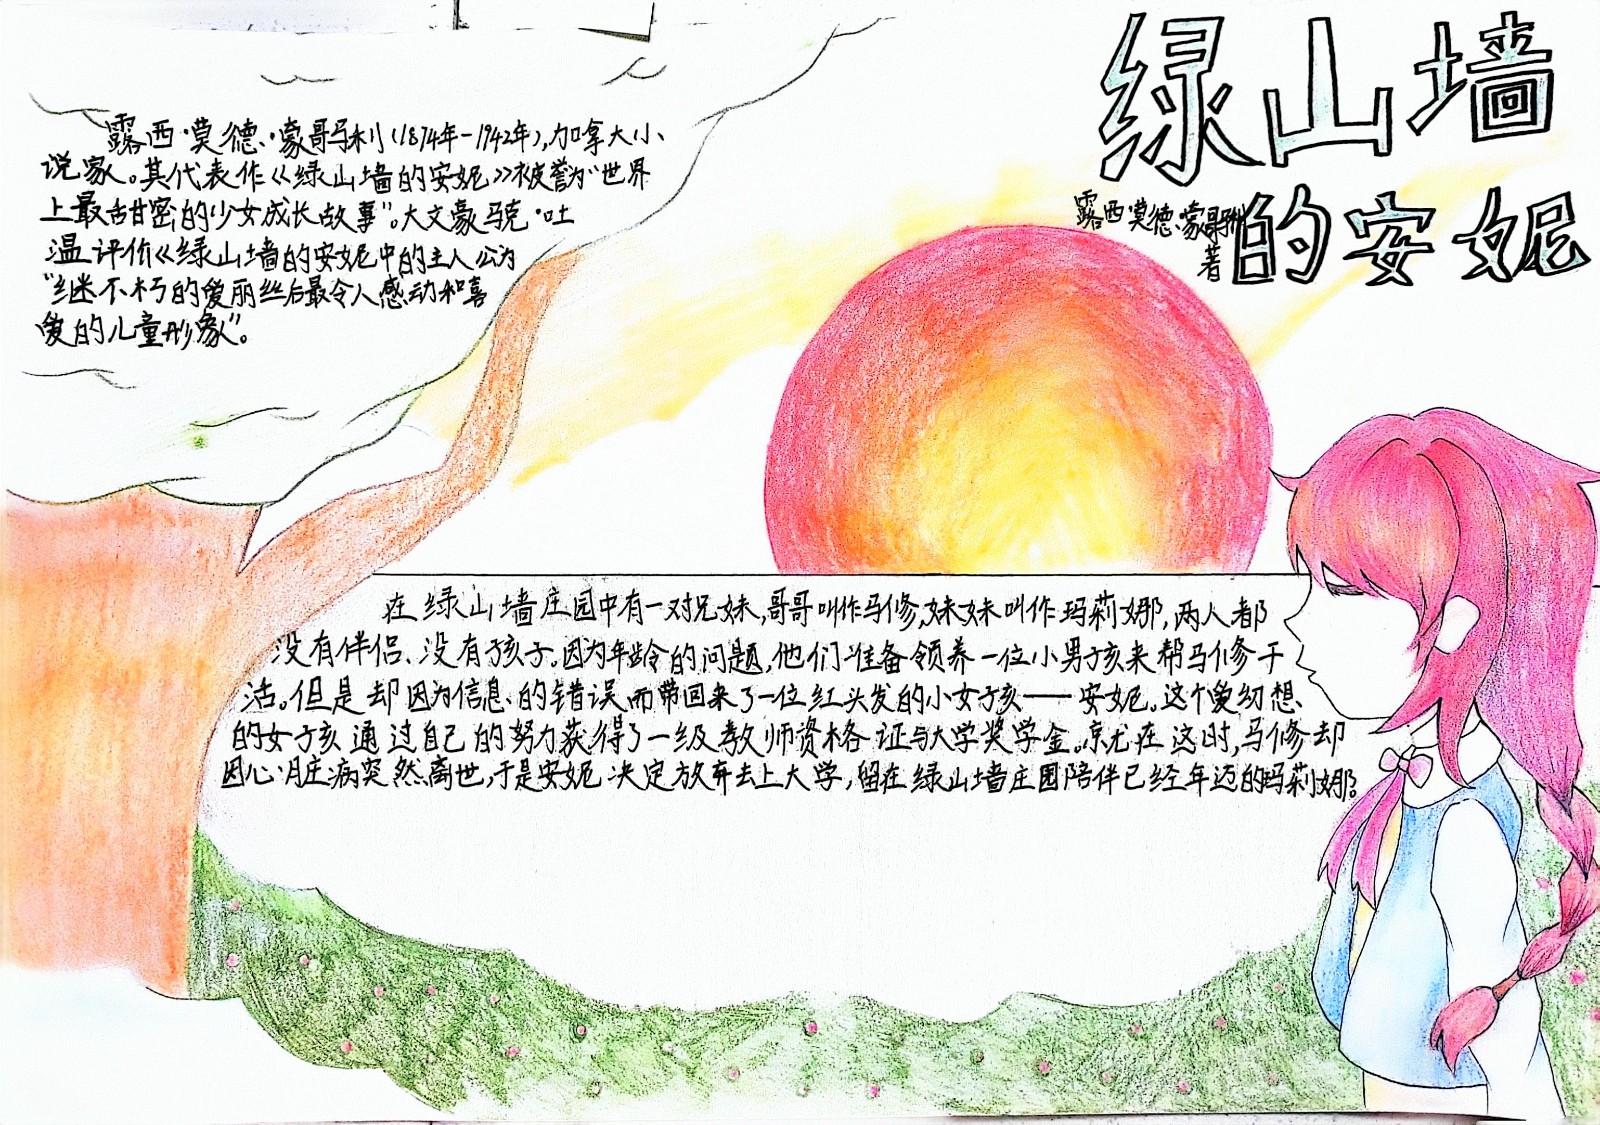 绿山墙
的安妮
露西·莫德·蒙哥马利
著
露西·莫德·蒙哥马利(1874年-1942年),加拿大小
说家。其代表作《绿山墙的安妮》被誉为“世界
上最甜密的少女成长故事”。大文豪马克·吐
温评价《绿山墙的安妮中的主人公为
“继不朽的爱丽丝后最令人感动和喜
爱的儿童形象”。
在绿山墙庄园中有一对兄妹,哥哥叫作马修,妹妹叫作玛莉娜,两人都
没有伴侣、没有孩子。因为年龄的问题,他们准备领养一位小男孩来帮马修干
活。但是却因为信息的错误而带回来了一位红头发的小女孩——安妮。这个爱幻想
的女孩通过自己的努力获得了一级教师资格证与大学奖学金。京尤在这时,马修却
因心脏病突然离世,于是安妮决定放弃去上大学,留在绿山墙庄园陪伴已经年迈的玛莉娜。